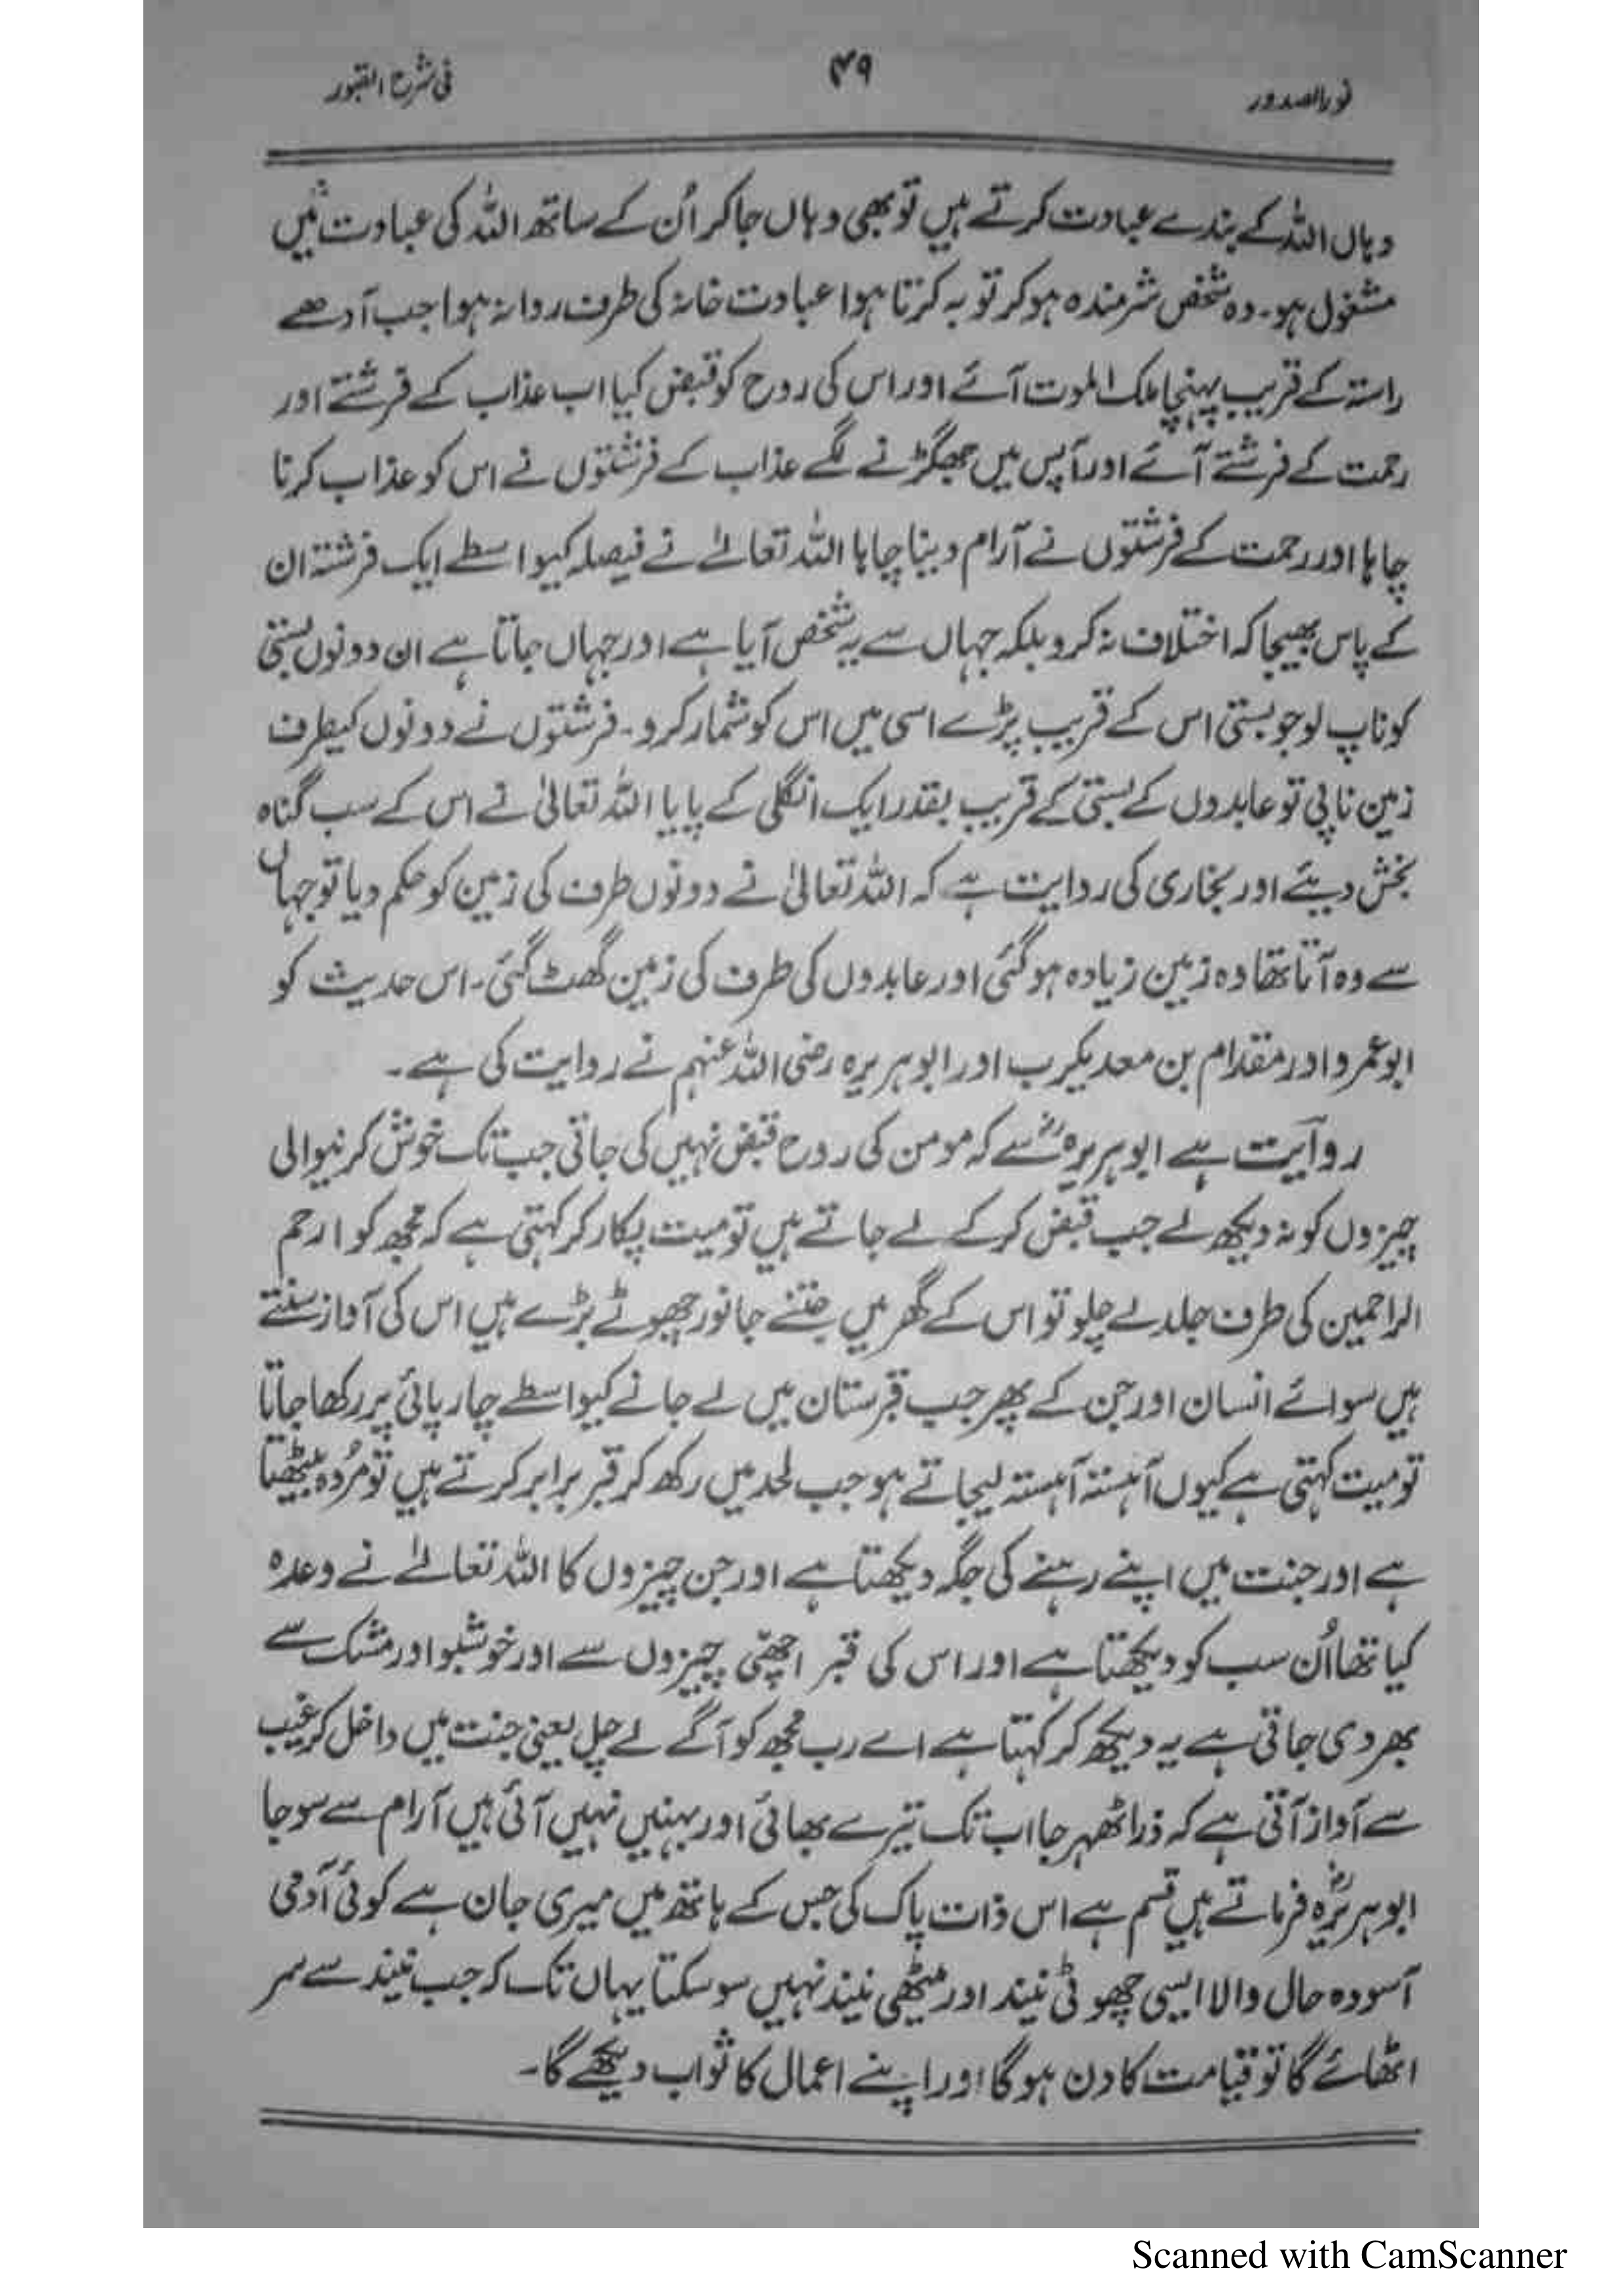 نور الصدور
۴۹
فی شرح القبور
وہاں اللہ کے بندے عبادت کرتے ہیں تو بھی وہاں جا کر اُن کے ساتھ اللہ کی عبادت میں
مشغول ہو۔ وہ شخص شرمندہ ہو کر توبہ کرتا ہوا عبادت خانہ کی طرف روانہ ہوا جب آدھے
راستہ کے قریب پہنچا ملک الموت آئے اور اس کی روح کو قبض کیا اب عذاب کے فرشتے اور
رحمت کے فرشتے آئے اور آپس میں جھگڑنے لگے عذاب کے فرشتوں نے اس کو عذاب کرنا
چاہا اور رحمت کے فرشتوں نے آرام دینا چاہا اللہ تعالےٰ نے فیصلہ کیواسطے ایک فرشتہ ان
کے پاس بھیجا کہ اختلاف نہ کرو بلکہ جہاں سے یہ شخص آیا ہے اور جہاں جاتا ہے ان دونوں بستی
کو ناپ لو جو بستی اس کے قریب پڑے اسی میں اس کو شمار کرو۔ فرشتوں نے دونوں کیطرف
زمین ناپی تو عابدوں کے بستی کے قریب بقدر ایک انگلی کے پایا اللہ تعالیٰ نے اس کے سب گناہ
بخش دیئے اور بخاری کی روایت ہے کہ اللہ تعالیٰ نے دونوں طرف کی زمین کو حکم دیا تو جہاں
سے وہ آتا تھا وہ زمین زیادہ ہو گئی اور عابدوں کی طرف کی زمین گھٹ گئی۔ اس حدیث کو
ابو عمرو اور مقدام بن معدیکرب اور ابو ہریرہ رضی اللہ عنہم نے روایت کی ہے۔
روایت ہے ابو ہریرہؓ سے کہ مومن کی روح قبض نہیں کی جاتی جب تک خوش کرنیوالی
چیزوں کو نہ دیکھ لے جب قبض کر کے لے جاتے ہیں تو میت پکار کر کہتی ہے کہ مجھ کو ارحم
الراحمین کی طرف جلد لے چلو تو اس کے گھر میں جتنے جانور چھوٹے بڑے ہیں اس کی آواز سنتے
ہیں سوائے انسان اور جن کے پھر جب قبرستان میں لے جانے کیواسطے چارپائی پر رکھا جاتا
تو میت کہتی ہے کیوں آہستہ آہستہ لیجاتے ہو جب لحد میں رکھ کر قبر برابر کرتے ہیں تو مُردہ بیٹھتا
ہے اور جنت میں اپنے رہنے کی جگہ دیکھتا ہے اور جن چیزوں کا اللہ تعالےٰ نے وعدہ
کیا تھا اُن سب کو دیکھتا ہے اور اس کی قبر اچھّی چیزوں سے اور خوشبو اور مشک سے
بھر دی جاتی ہے یہ دیکھ کر کہتا ہے اے رب مجھ کو آگے لے چل یعنی جنت میں داخل کر غیب
سے آواز آتی ہے کہ ذرا ٹھہر جا اب تک تیرے بھائی اور بہنیں نہیں آئی ہیں آرام سے سو جا
ابو ہریرہؓ فرماتے ہیں قسم ہے اس ذات پاک کی جس کے ہاتھ میں میری جان ہے کوئی آدمی
آسودہ حال والا ایسی چھوٹی نیند اور میٹھی نیند نہیں سو سکتا یہاں تک کہ جب نیند سے سر
اٹھائے گا تو قیامت کا دن ہو گا اور اپنے اعمال کا ثواب دیکھے گا۔
Scanned with CamScanner